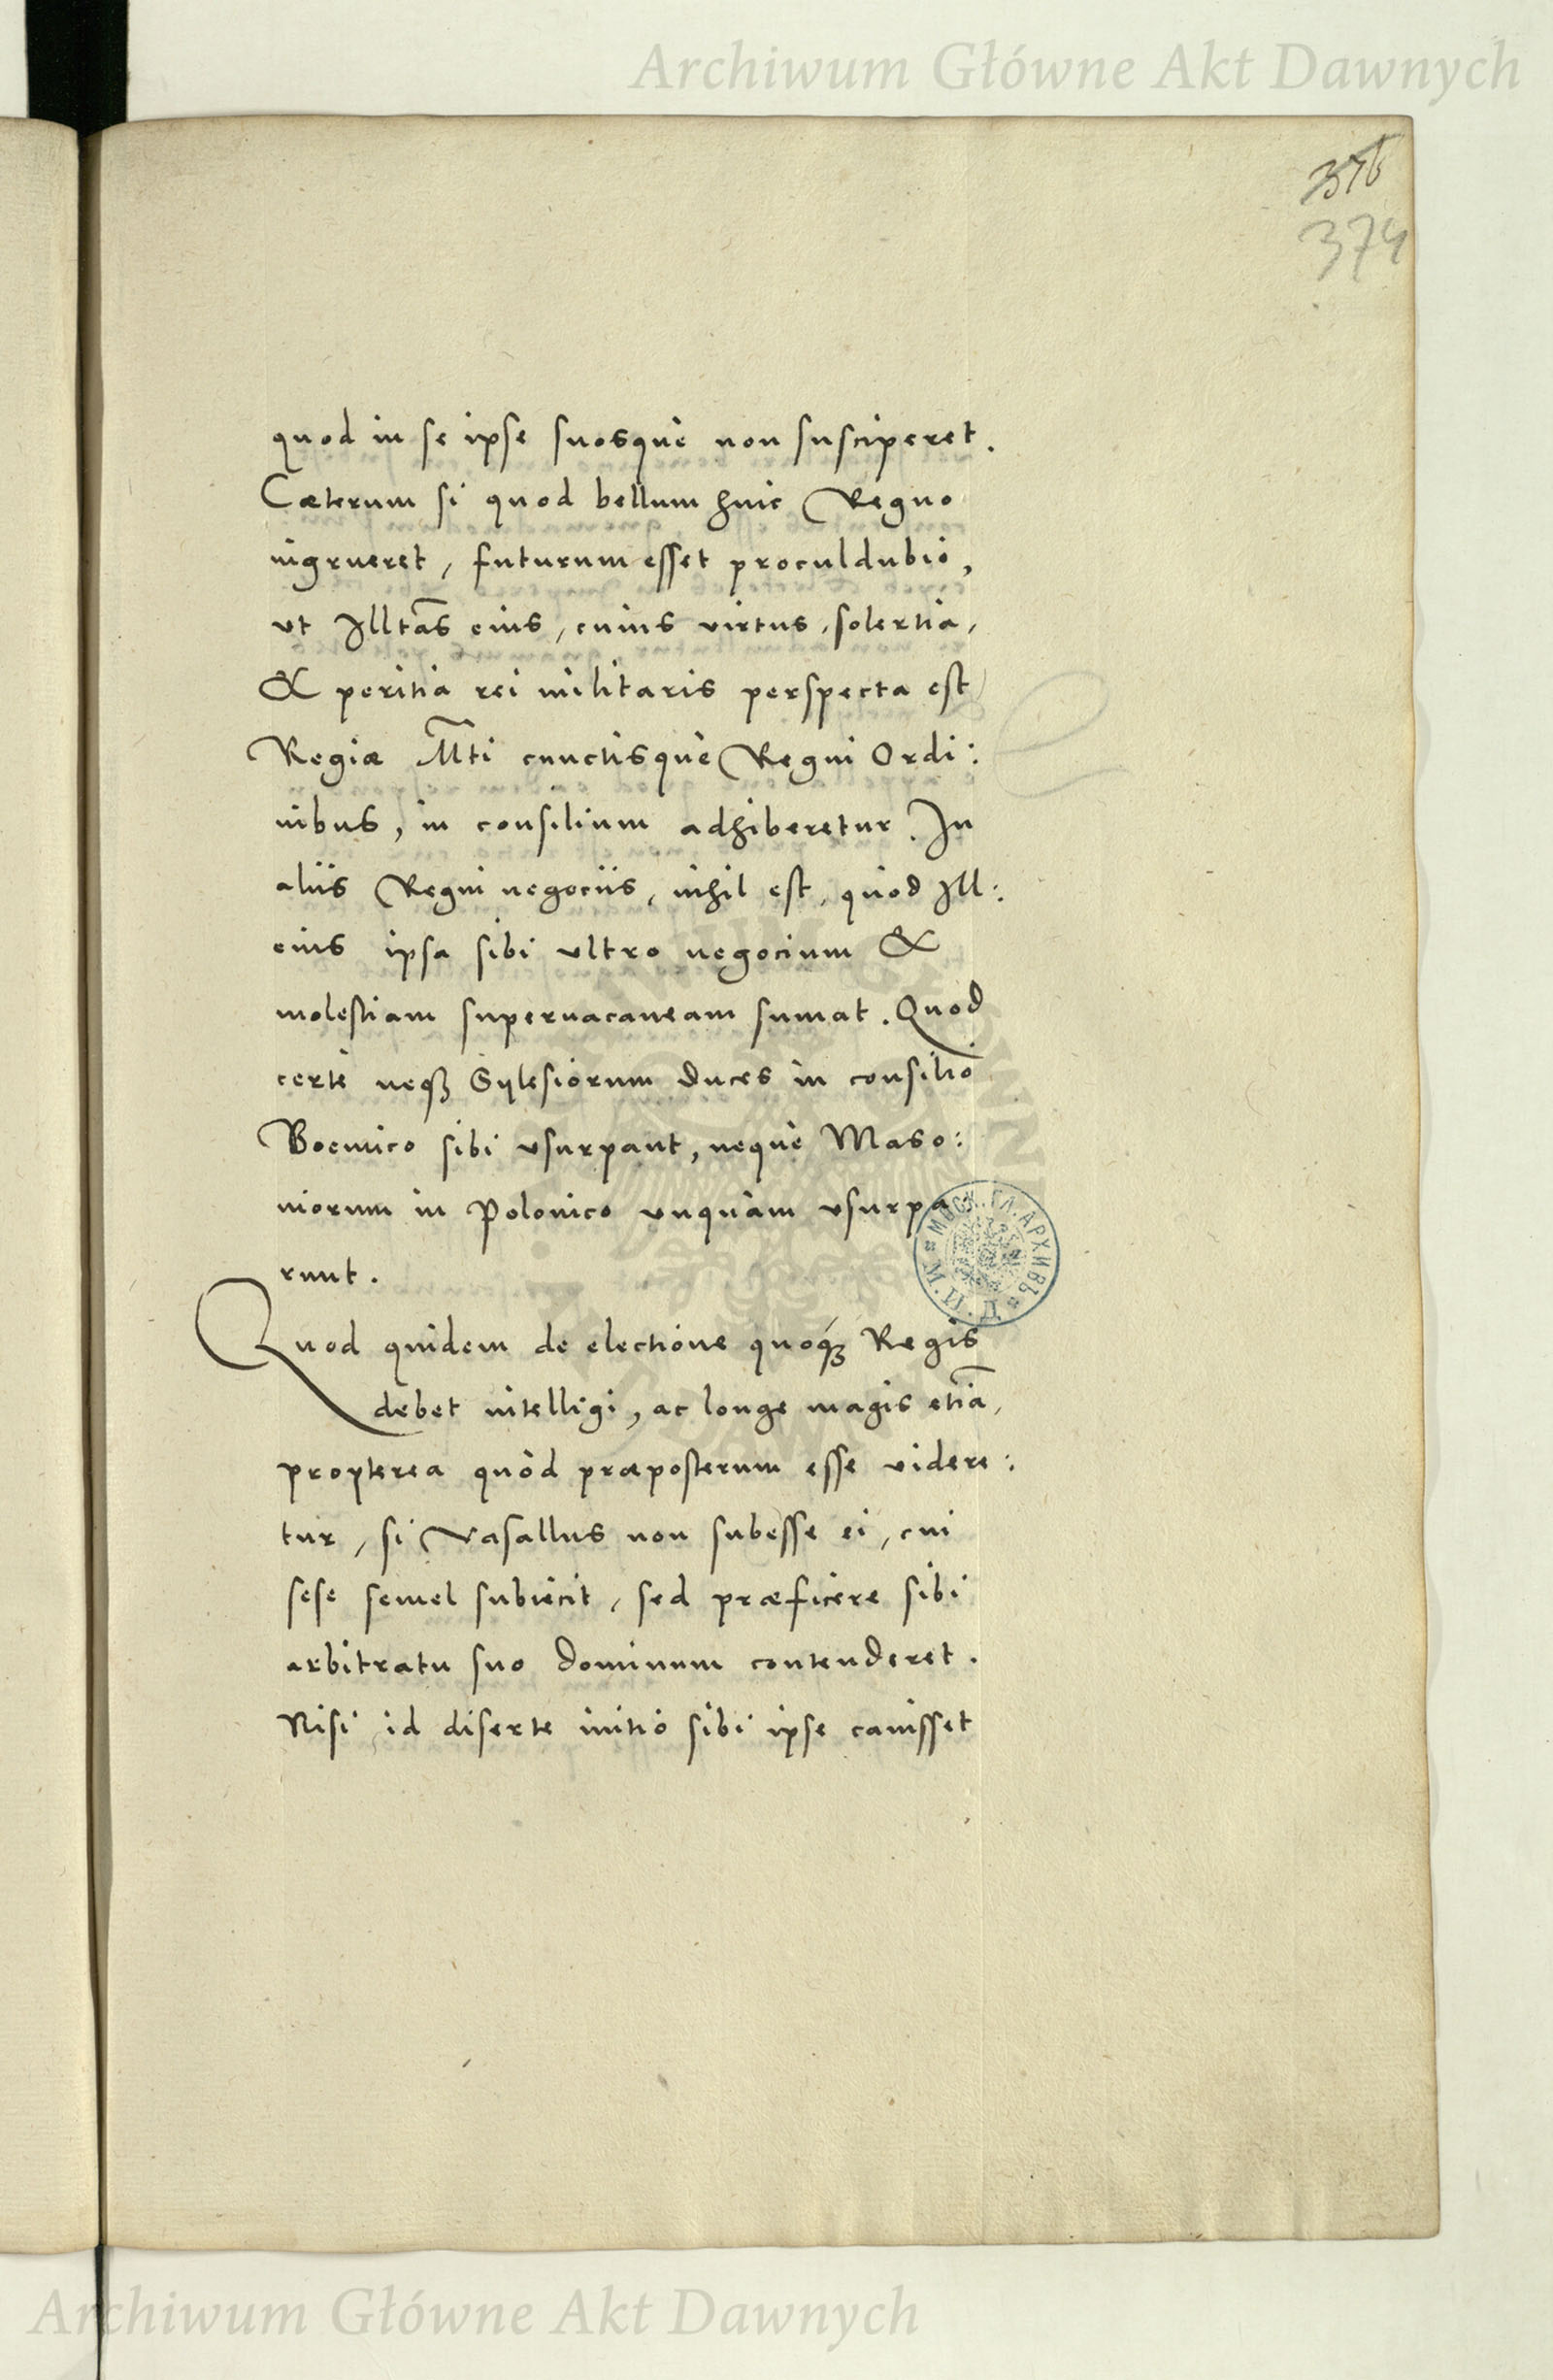 Archiwum Główne Akt Dawnych
376
374
quod in se ipse suosque non susciperet.
Cæterum si quod bellum huic Regno
ingrueret, futurum esset proculdubio,
ut Illtas eius, cuius virtus, solertia,
& peritia rei militaris perspecta est
Regiæ Mti cunctisque Regni Ordi:
nibus, in consilium adhiberetur. In
aliis Regni negociis, nihil est, quod Ill:
eius ipsa sibi ultro negocium &
molestiam supervacaneam sumat. Quod
certe neqȝ Sylesiorum duces in consilio
Boemico sibi usurpant, neque Maso:
niorum in Polonico unquam usurpa
runt.
Quod quidem de electione quoqȝ Regis
debet intelligi, ac longe magis etiā,
propterea quòd præposterum esse videre:
tur, si Vasallus non subesse ei, cui
sese semel subiecit, sed præficere sibi
arbitratu suo dominum contenderet.
Nisi id diserte initio sibi ipse cavisset
МОСК. ГЛ. АРХИВЪ
М. И. Д.
Archiwum Główne Akt Dawnych